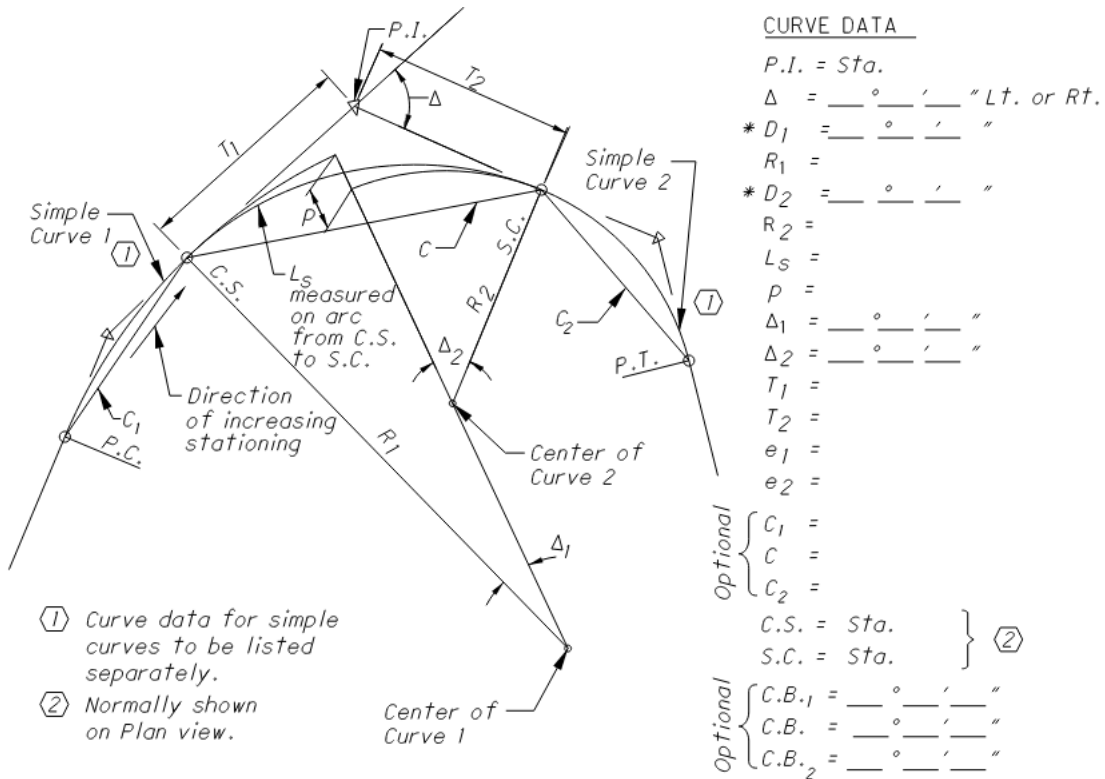 P.I.
T₂
Δ
T₁
Simple
Curve 2
Simple
Curve 1
1
p
C
S.C.
C.S.
Lₛ
measured
on arc
from C.S.
to S.C.
R₂
C₂
1
Δ₂
P.T.
Direction
of increasing
stationing
C₁
P.C.
R₁
Center of
Curve 2
Δ₁
Center of
Curve 1
1 Curve data for simple
curves to be listed
separately.
2 Normally shown
on Plan view.
CURVE DATA
P.I. = Sta.
Δ = ___ ° ___ ' ___ " Lt. or Rt.
* D₁ = ___ ° ___ ' ___ "
R₁ =
* D₂ = ___ ° ___ ' ___ "
R₂ =
Lₛ =
p =
Δ₁ = ___ ° ___ ' ___ "
Δ₂ = ___ ° ___ ' ___ "
T₁ =
T₂ =
e₁ =
e₂ =
Optional
C₁ =
C =
C₂ =
C.S. = Sta.
S.C. = Sta.
2
Optional
C.B.₁ = ___ ° ___ ' ___ "
C.B. = ___ ° ___ ' ___ "
C.B.₂ = ___ ° ___ ' ___ "